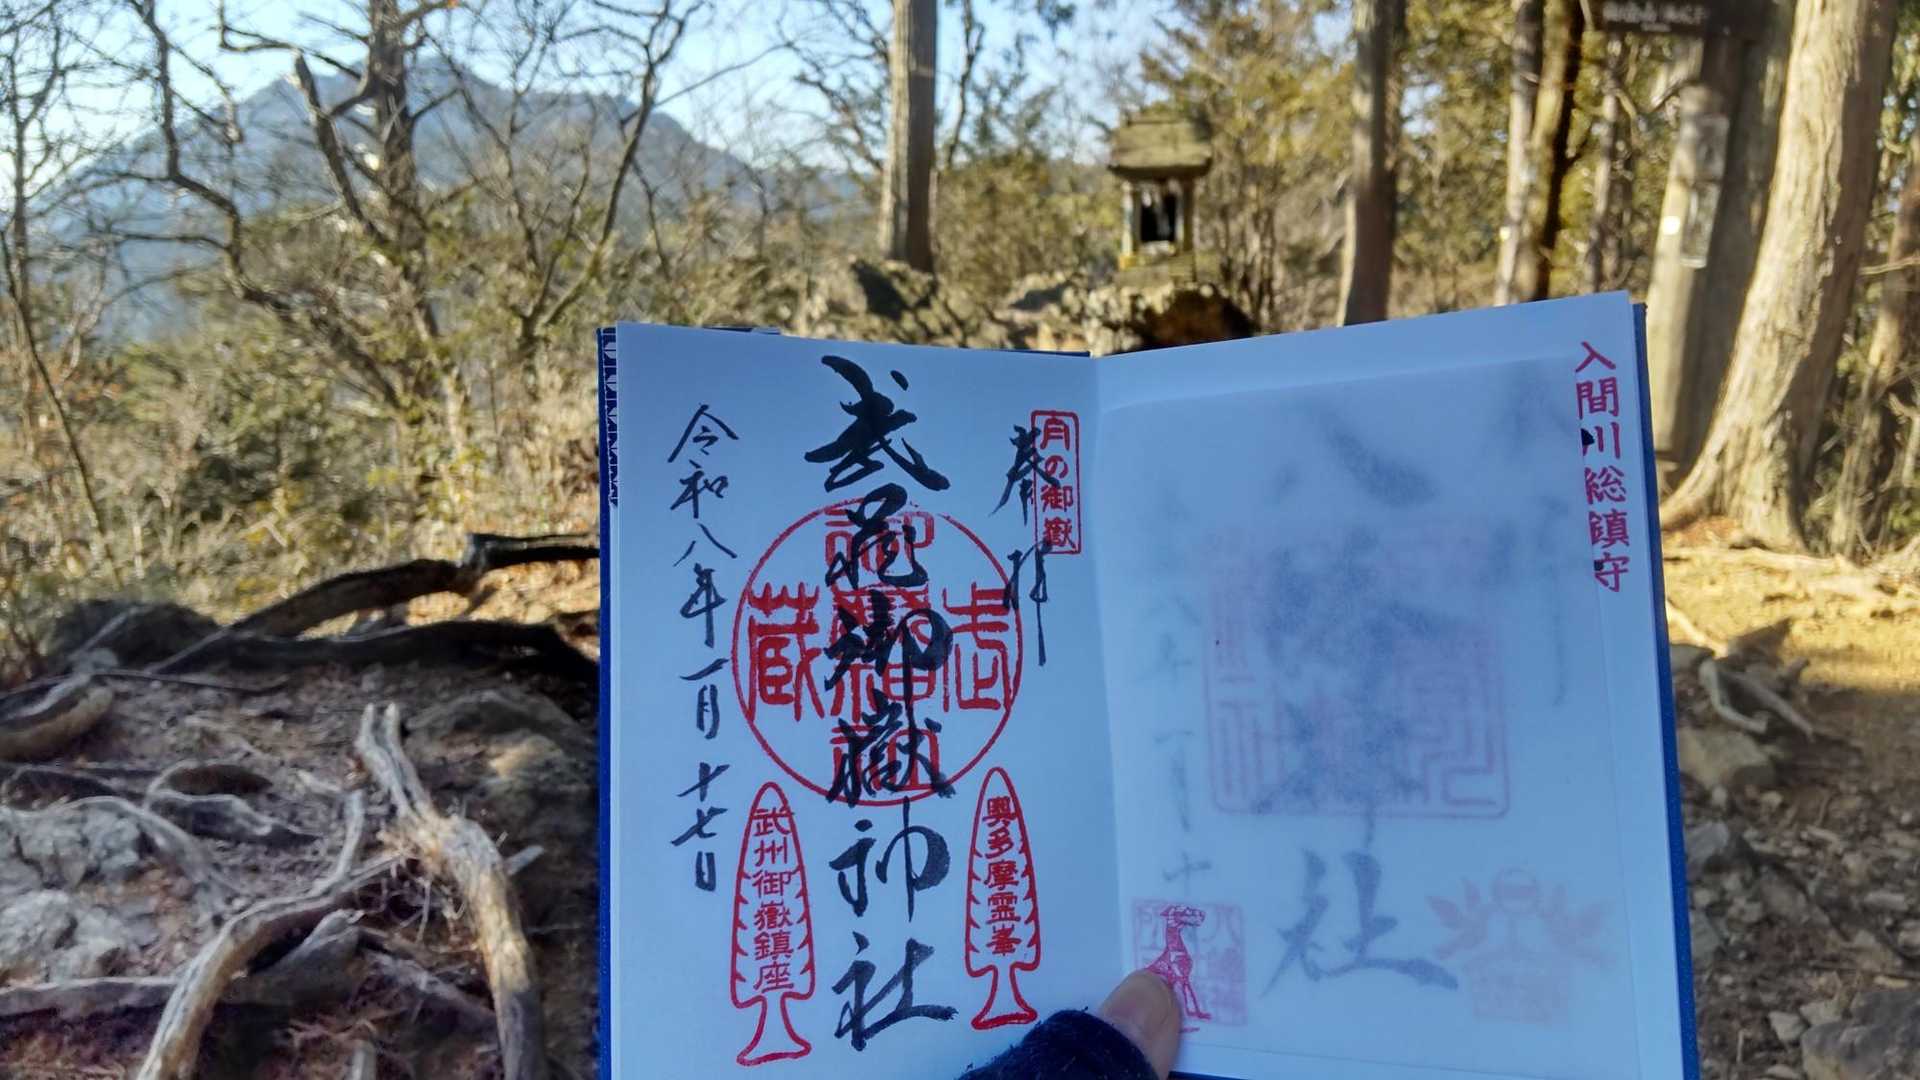 入間川総鎮守
八幡神社
月の御嶽
奉拝
武蔵御嶽神社
武蔵
御嶽神社
奥多摩霊峯
武州御嶽鎮座
令和八年一月十七日